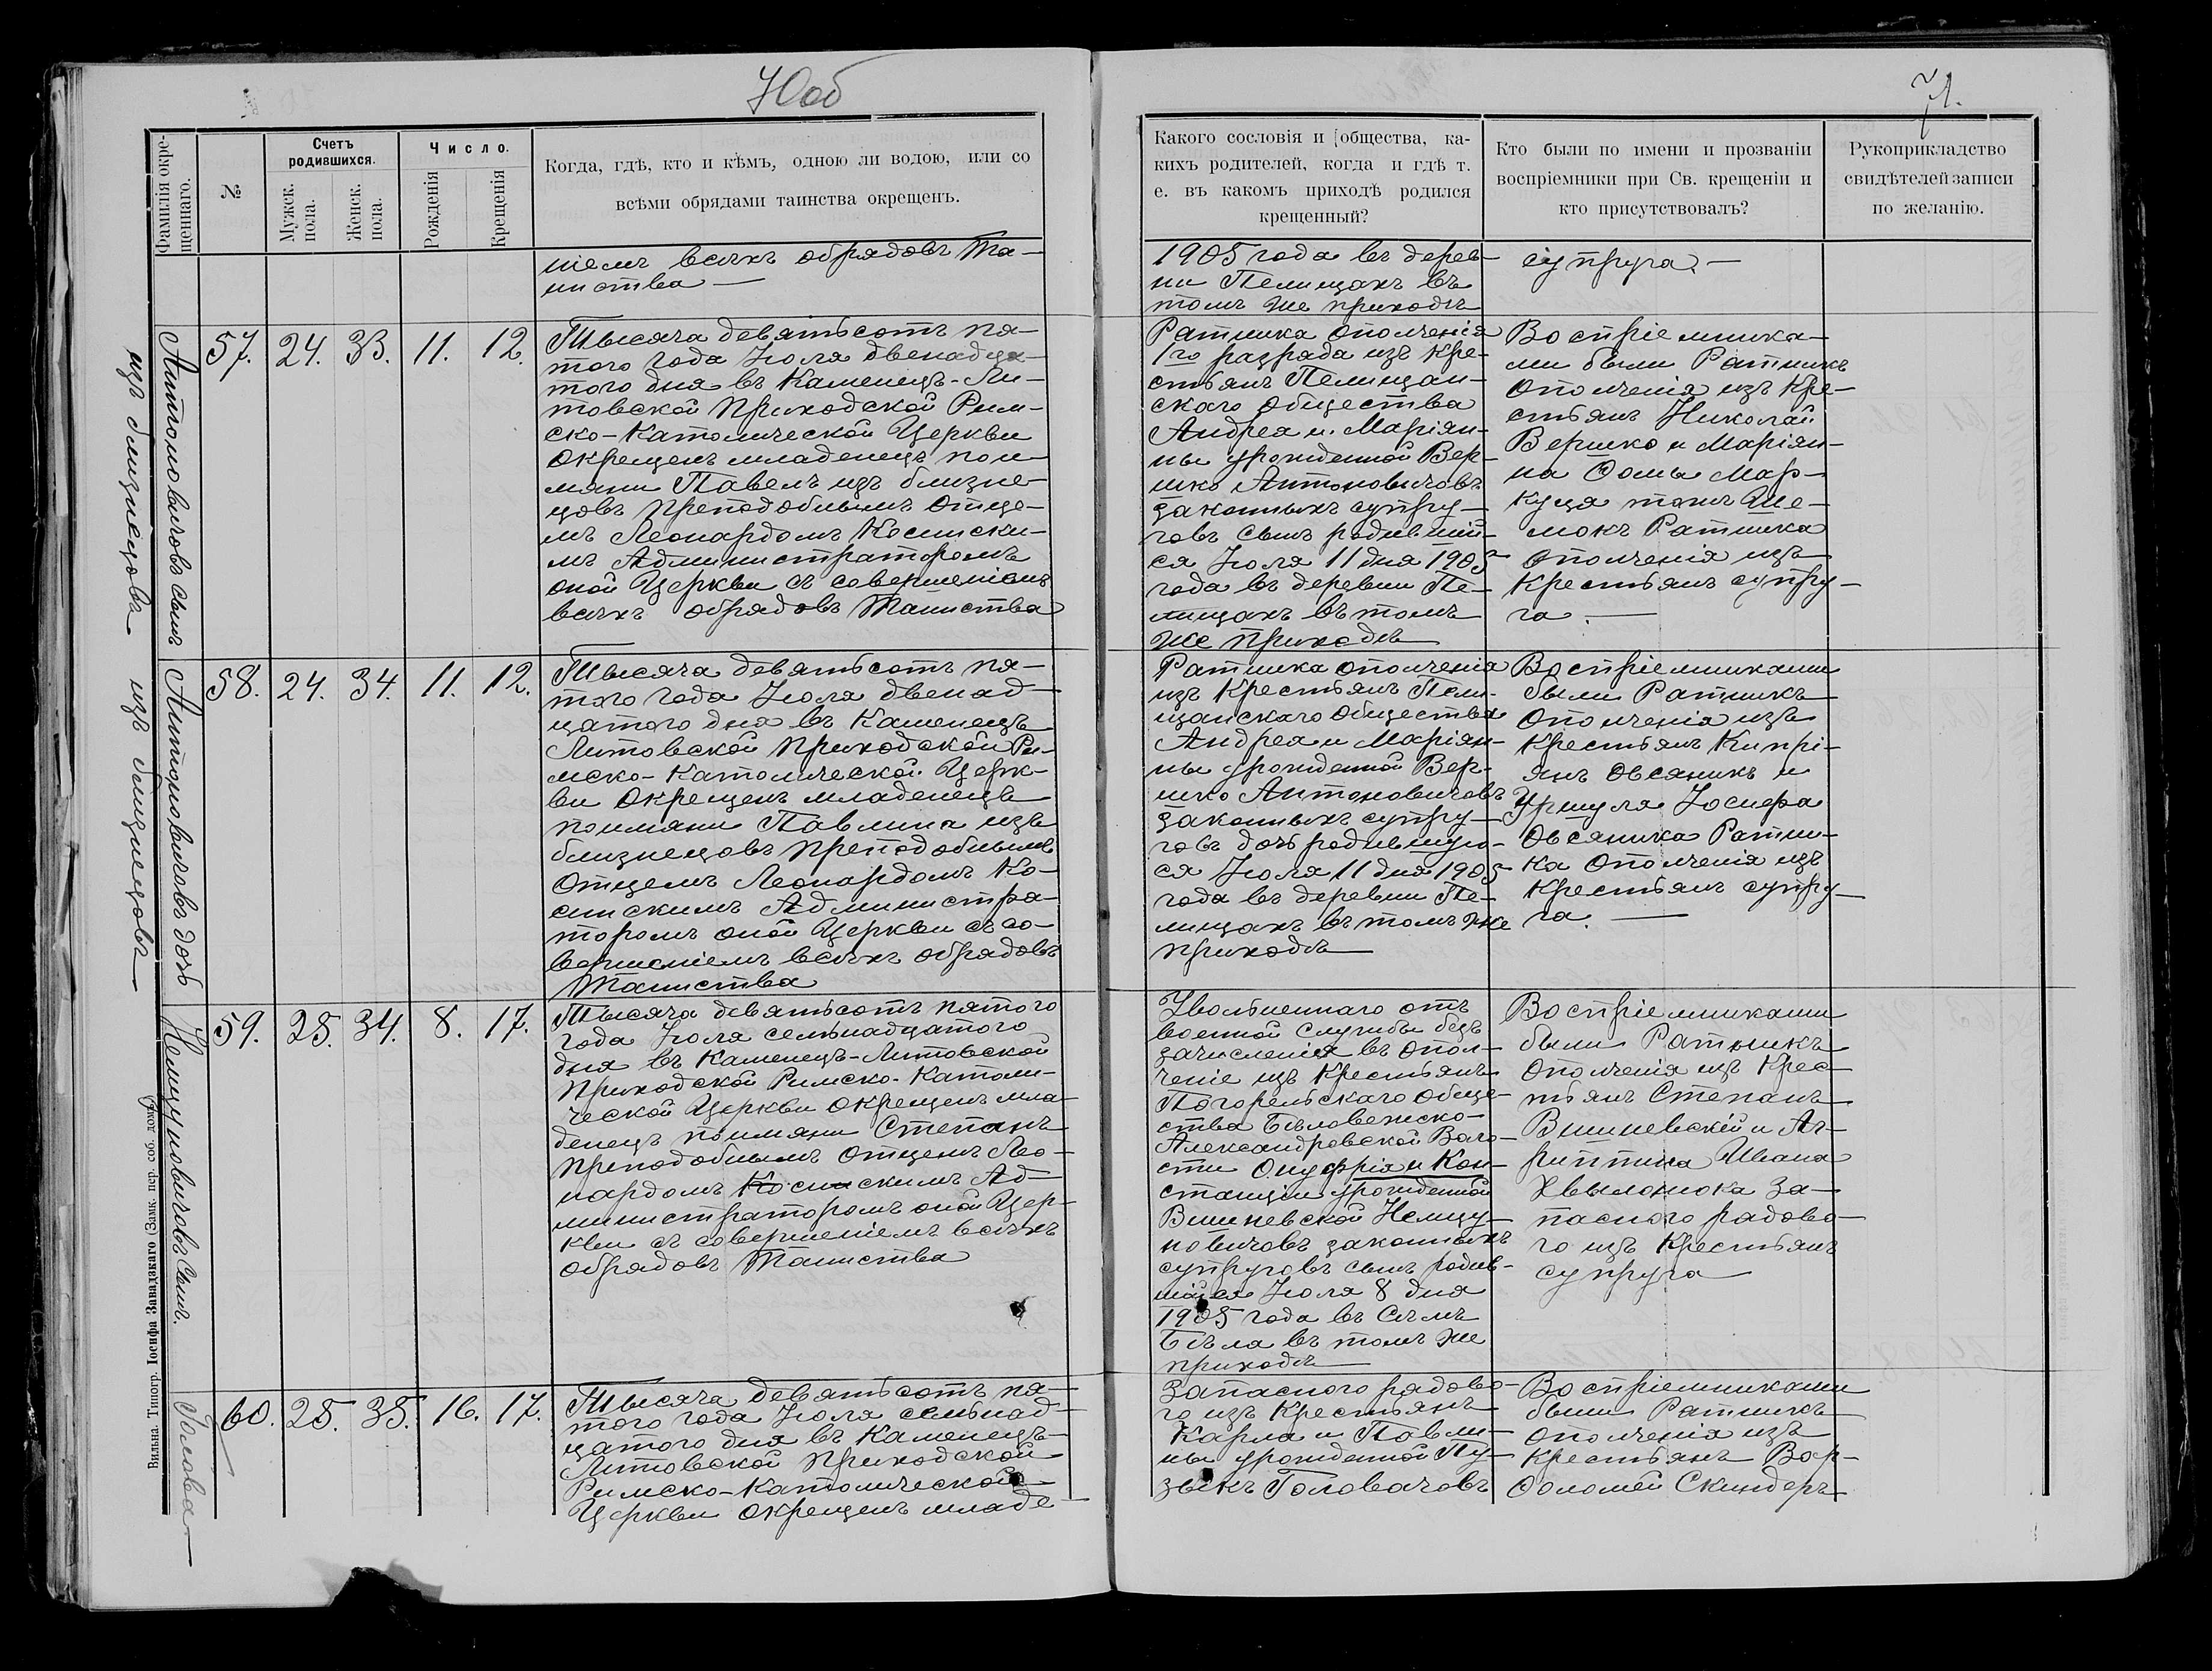 70об
71.
Фамилія окре-
щеннаго.
№
Счетъ
родившихся.
Мужск.
пола.
Женск.
пола.
Число.
Рожденія
Крещенія
Когда, гдѣ, кто и кѣмъ, одною ли водою, или со
всѣми обрядами таинства окрещенъ.
Какого сословія и общества, ка-
кихъ родителей, когда и гдѣ т.
е. въ какомъ приходѣ родился
крещенный?
Кто были по имени и прозваніи
воспріемники при Св. крещеніи и
кто присутствовалъ?
Рукоприкладство
свидѣтелей записи
по желанію.
ніемъ всѣхъ обрядовъ Та-
инства
1905 года въ дерев-
ни Пелищахъ въ
томъ же приходѣ
супруга.
Антоновичовъ сынъ
изъ близнецовъ
57. 24. 33. 11. 12.
Тысяча девятьсотъ пя-
того года Іюля двенадца-
того дня въ Каменецъ-Ли-
товской Приходской Рим-
ско-Католической Церкви
окрещенъ младенецъ пои-
мяни Павелъ изъ близне-
цовъ Преподобнымъ Отце-
мъ Леонардомъ Косински-
мъ Администраторомъ
оной Церкви съ совершеніемъ
всѣхъ обрядовъ Таинства
Ратника ополченія
1го разряда изъ кре-
стьянъ Пелищан-
скаго общества
Андрея и Маріян-
ны урожденной Вер-
шко Антоновичовъ
законныхъ супру-
говъ сынъ родившій-
ся Іюля 11 дня 1905
года въ деревни Пе-
лищахъ въ томъ
же приходѣ
Воспріемника-
ми были Ратникъ
ополченія изъ кре-
стьянъ Николай
Вершко и Маріян-
на Ѳомы Мар-
куця тамъ Же-
мокъ Ратника
ополченія изъ
крестьянъ супру-
га.
Антоновичовъ дочь
изъ близнецовъ
58. 24. 34. 11. 12.
Тысяча девятьсотъ пя-
того года Іюля двенад-
цатого дня въ Каменецъ
Литовской Приходской Ри-
мско-Католической Церк-
ви окрещенъ младенецъ
поимяни Павлина изъ
близнецовъ Преподобнымъ
Отцемъ Леонардомъ Ко-
синскимъ Администра-
торомъ оной Церкви съ со-
вершеніемъ всѣхъ обрядовъ
Таинства
Ратника ополченія
изъ крестьянъ Пели-
щанскаго общества
Андрея и Маріян-
ны урожденной Вер-
шко Антоновичовъ
законныхъ супру-
говъ дочь родившую-
ся Іюля 11 дня 1905
года въ деревни Пе-
лищахъ въ томъ же
приходѣ
Воспріемниками
были Ратникъ
ополченія изъ
крестьянъ Кипрі-
янъ Овсяникъ и
Уршуля Іосифа
Овсяника Ратни-
ка ополченія изъ
крестьянъ супру-
га.
Немцуновичовъ сынъ.
59. 25. 34. 8. 17.
Тысяча девятьсотъ пятого
года Іюля семьнадцатого
дня въ Каменецъ-Литовской
Приходской Римско-Католи-
ческой Церкви окрещенъ мла-
денецъ поимяни Степанъ
Преподобнымъ Отцемъ Лео-
нардомъ Косинскимъ Ад-
министраторомъ оной Цер-
кви съ совершеніемъ всѣхъ
обрядовъ Таинства
Увольненнаго отъ
военной службы безъ
зачисленія въ опол-
ченіе изъ крестьянъ
Погорельскаго обще-
ства Бѣловежско-
Александровской Воло-
сти Онуфрія и Кон-
станціи урожденной
Вишневской Немцу-
новичовъ законныхъ
супруговъ сынъ родив-
шійся Іюля 8 дня
1905 года въ Селѣ
Бѣла въ томъ же
приходѣ
Воспріемниками
были Ратникъ
ополченія изъ крес-
тьянъ Степанъ
Вишневскій и Аг-
риппина Ивана
Хвылонюка за-
пасного рядово-
го изъ крестьянъ
супруга
Голова
60. 25. 35. 16. 17.
Тысяча девятьсотъ пя-
того года Іюля семьнад-
цатого дня въ Каменецъ-
Литовской Приходской
Римско-Католической
Церкви окрещенъ младе-
Запасного рядово-
го изъ крестьянъ
Карла и Павли-
ны урожденной Пу-
зыкъ Головачовъ
Воспріемниками
были Ратникъ
ополченія изъ
крестьянъ Вар-
ѳоломей Скиндеръ
Вильна. Типогр. Іосифа Завадзкаго (Замк. пер. соб. домъ).